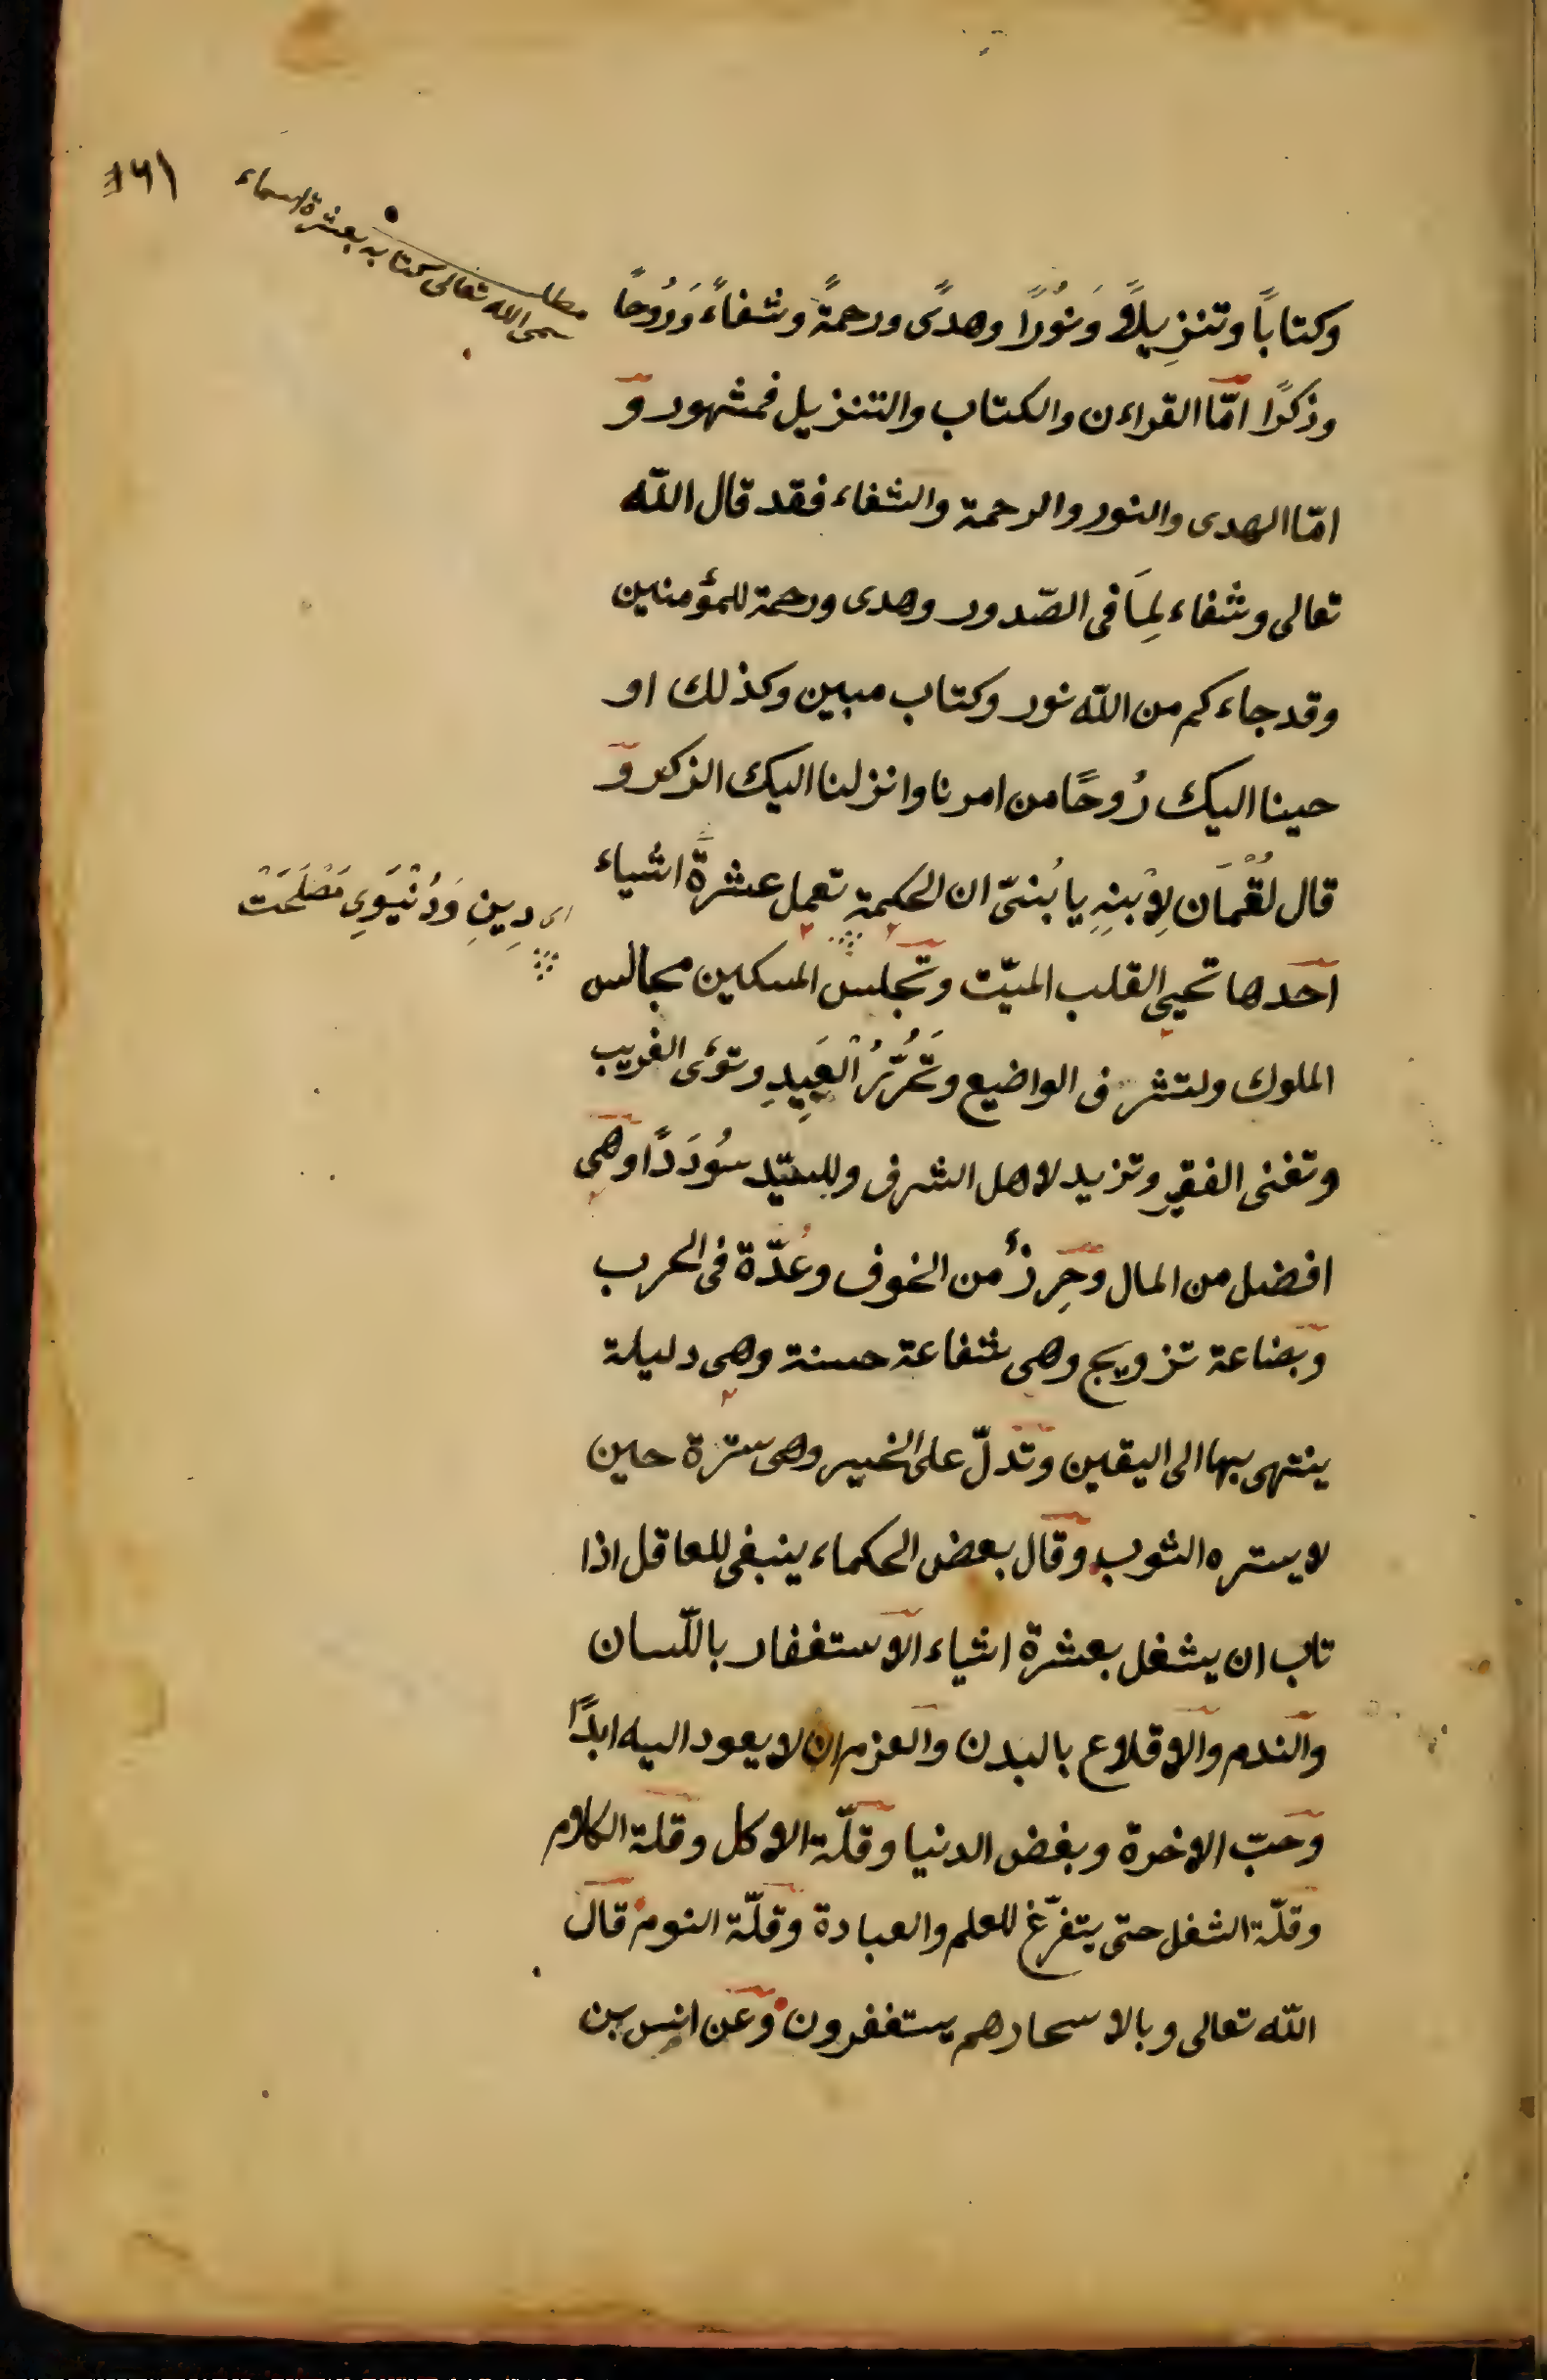 ١٦١
مطلب
سمى الله تعالى كتابه بعشرة اسماء
وكتاباً وتنزِيلاً وَنُورًا وهدىً ورحمةً وشفاءً وَرُوحًا
وذكرًا امّا القراءن والكتاب والتنزيل فمشهور و
امّا الهدى والنور والرحمة والشفاء فقد قال الله
تعالى وشفاء لِمَا فى الصّدور وهدى ورحمة للمؤمنين
وقد جاءكم من الله نور وكتاب مبين وكذلك او
حينا اليك رُوحًا من امرنا وانزلنا اليك الذكر و
قال لُقْمَان لِاْبنِهِ يا بُنىّ ان الحكمة تعمل عشرة اشياء
اى دِينِ وَدُنْيَوِى مَصْلَحَتْ
احدها تحيى القلب الميّت وتجلس المسكين مجالس
الملوك ولتشرف الواضيع وتَحُرّرُ اْلعَبِيدِ وتؤى الغريب
وتغنى الفقير وتزيد لاهل الشرف وللسيّد سُودَدًا وهى
افضل من المال وحِرزٌ من الخوف وعُدّة فى الحرب
وبضاعة تزويج وهى شفاعة حسنة وهى دليلة
ينتهى بها الى اليقين وتدلّ على الخير وهى سترة حين
لا يستره الثوب وقال بعض الحكماء ينبغى للعاقل اذا
تاب ان يشغل بعشرة اشياء الاستغفار باللّسان
والندم والاقلاع بالبدن والعزم ان لا يعود اليه ابدًا
وحبّ الاخرة وبغض الدنيا وقلّة الاكل وقلة الكلام
وقلّة الشغل حتى يتفرّغ للعلم والعبادة وقلّة النوم قال
الله تعالى وبالاسحارهم يستغفرون وعن انس بن